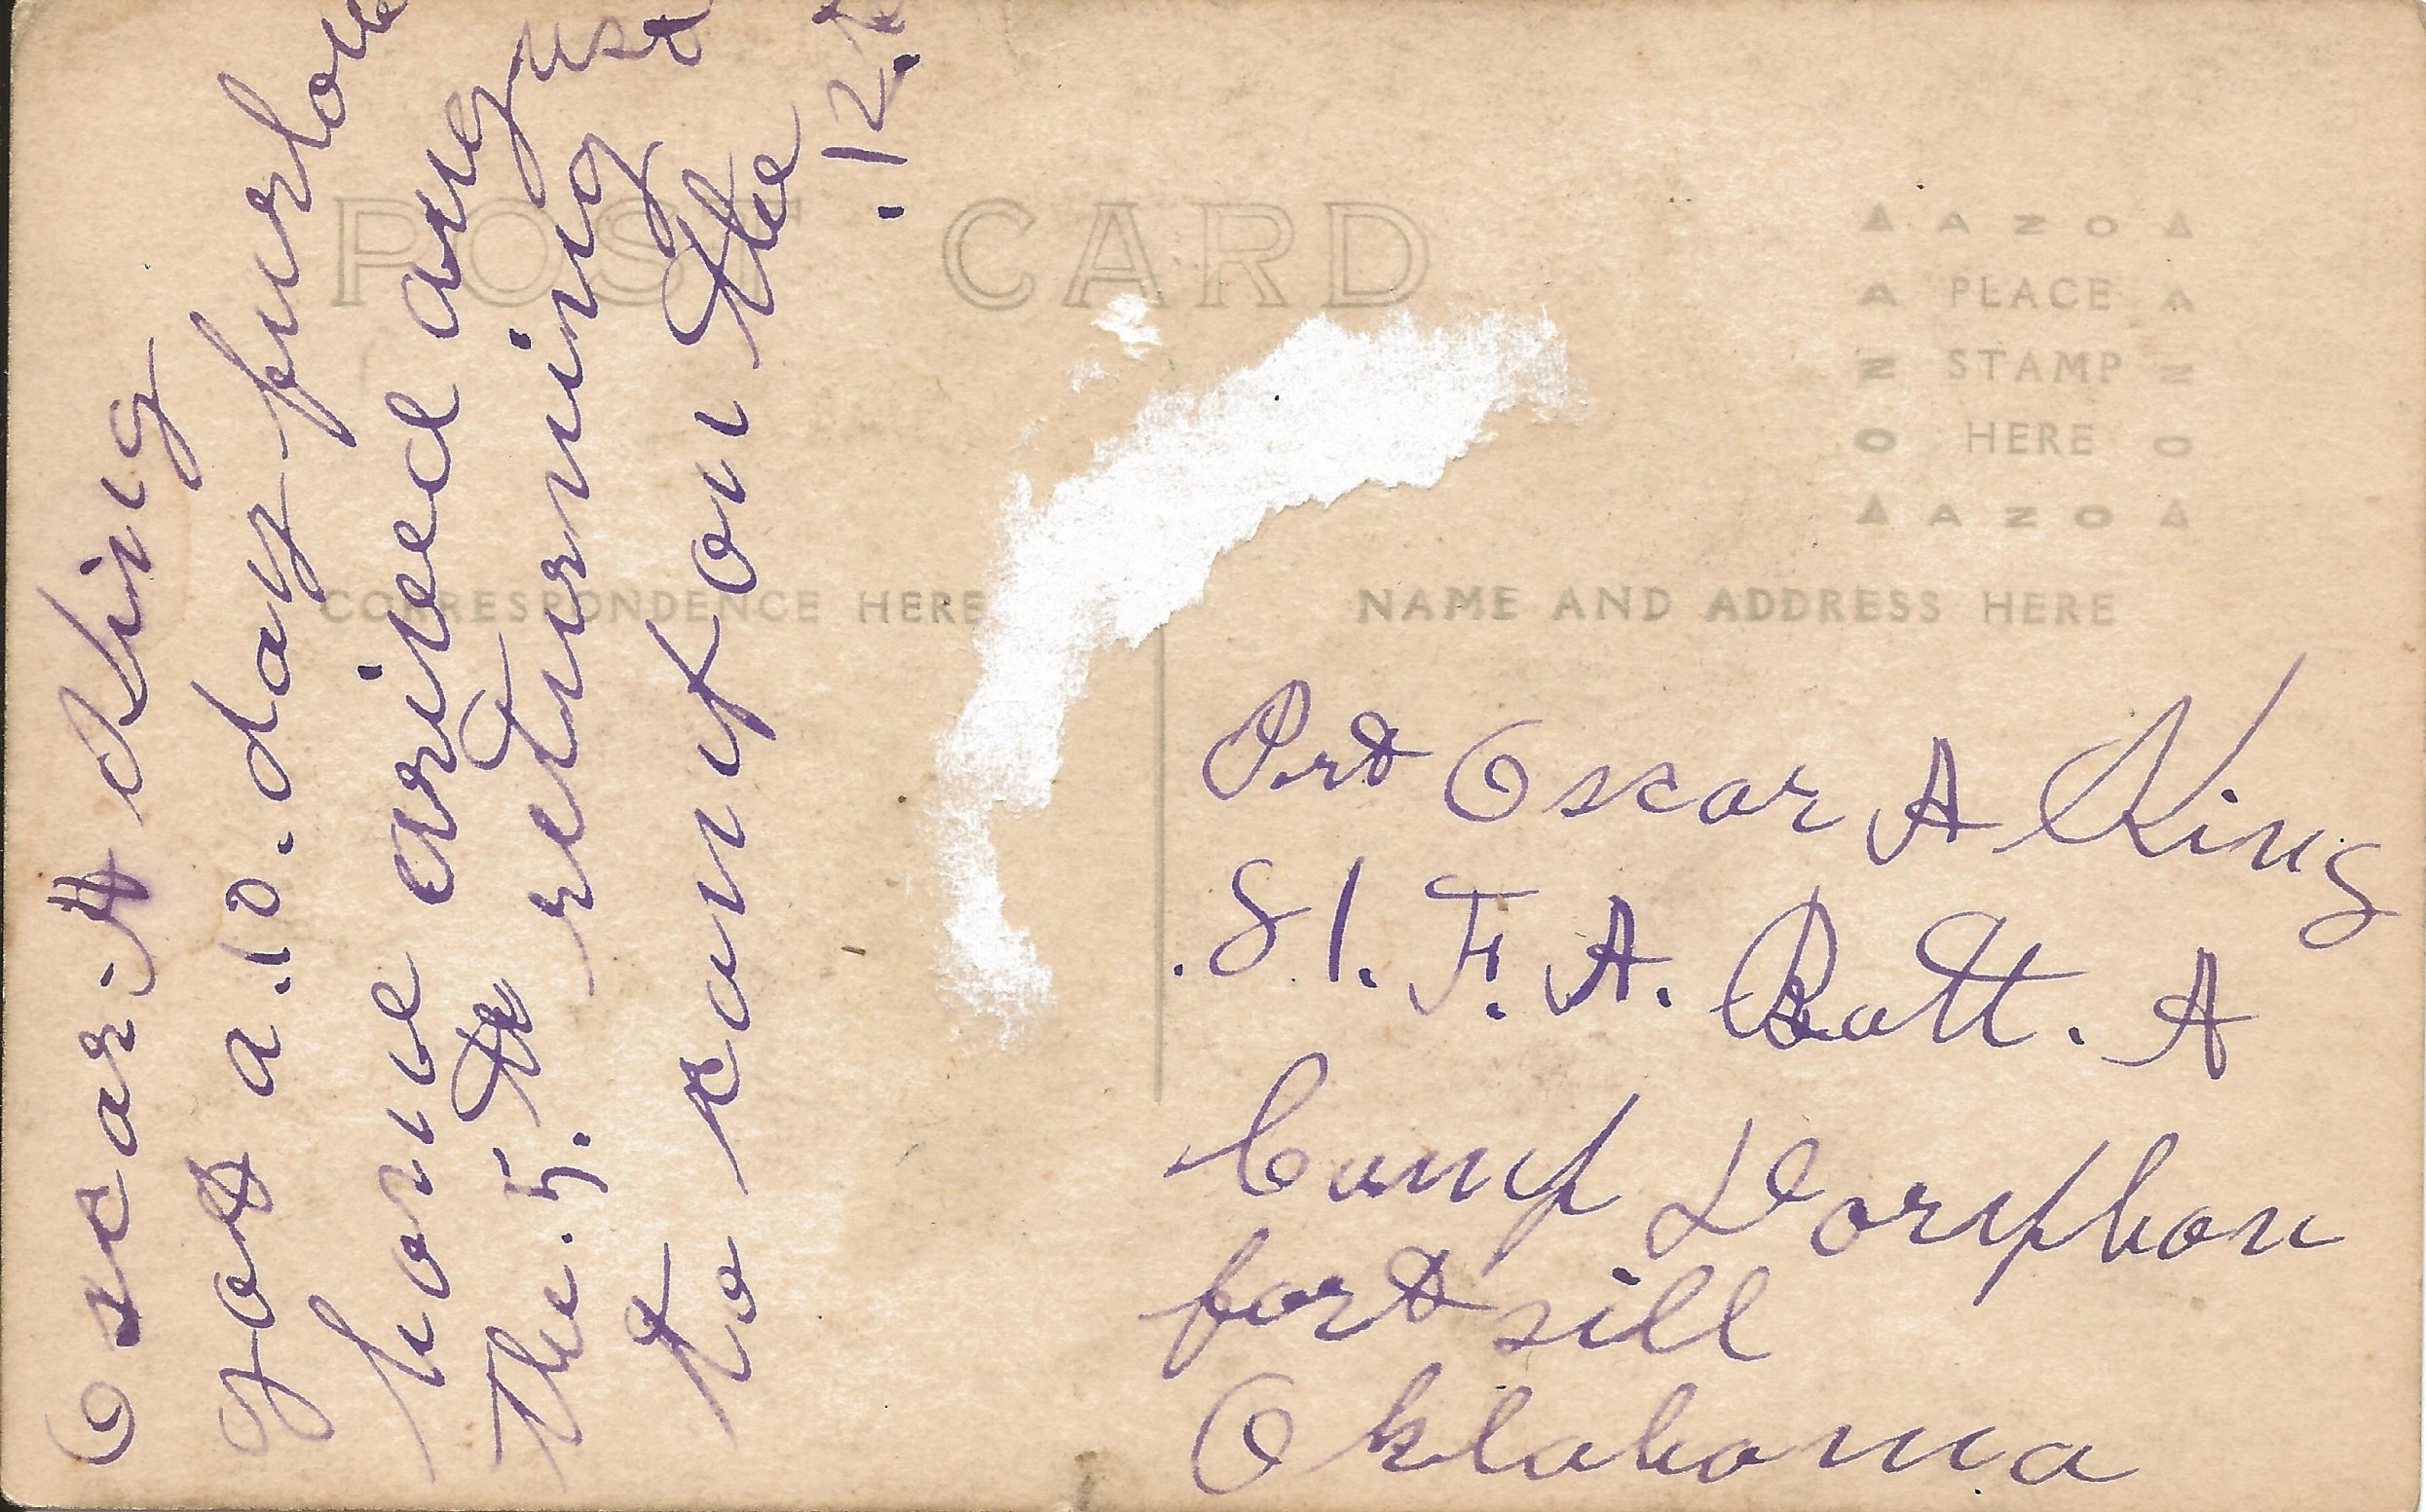 Oscar. A King
gott a. 10. day furlou
home arived august
the. 5. th returning
to camp on the
. 12. th
POST CARD
CORRESPONDENCE HERE
AZO
PLACE
STAMP
HERE
AZO
NAME AND ADDRESS HERE
Prt Oscar A King
. S 1. F. A. Batt. A
Camp Doniphon
fort sill
Oklahoma